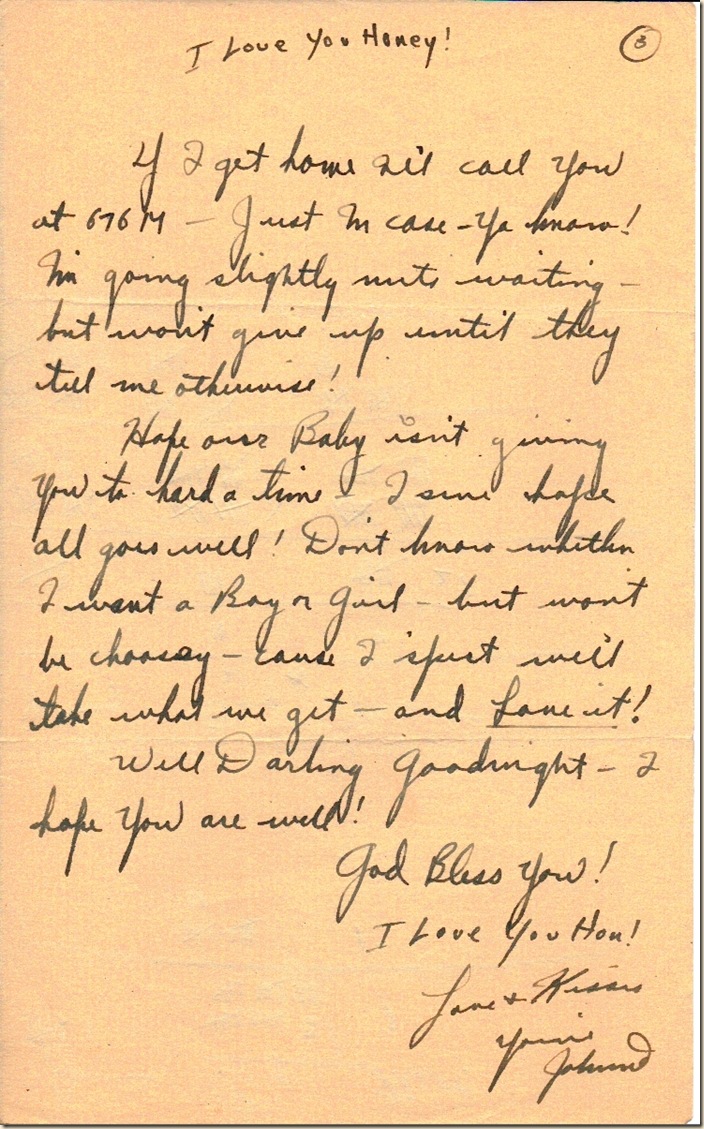 I Love You Honey!
3
If I get home I'll call You
at 676M — Just in case - Ya know!
I'm going slightly nuts waiting -
but won't give up until they
tell me otherwise!
Hope our Baby isn't giving
You to hard a time - I sure hope
all goes well! Don't know whether
I want a Boy or Girl - but won't
be choosey - cause I 'spect we'll
take what we get - and Love it!
Well Darling Goodnight - I
hope You are well!
God Bless You!
I Love You Hon!
Love & Kisses
Your's